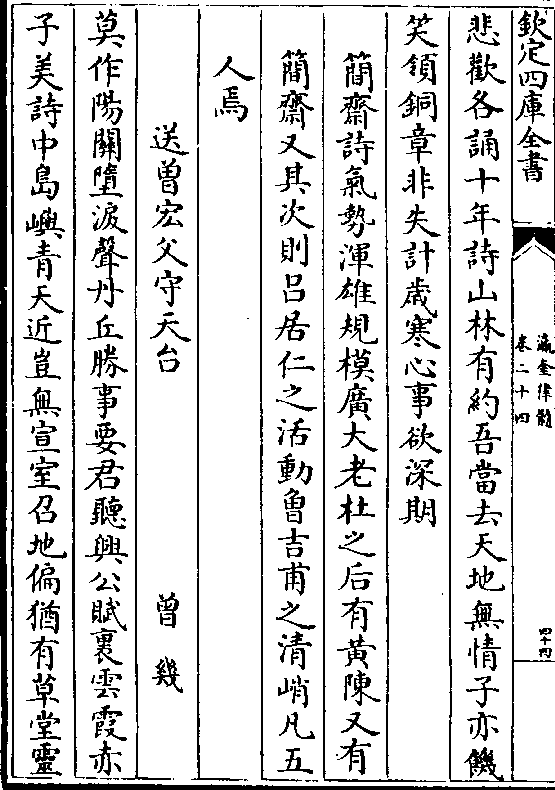 欽定四庫全書
瀛奎律髓
卷二十四
四十四
悲歡各誦十年詩山林有約吾當去天地無情子亦饑
笑領銅章非失計歲寒心事欲深期
簡齋詩氣勢渾雄規模廣大老杜之后有黃陳又有
簡齋又其次則呂居仁之活動魯吉甫之清峭凡五
人焉
送曾宏父守天台 曾幾
莫作陽關墮淚聲丹丘勝事要君聽興公賦裏雲霞赤
子美詩中島嶼青天近豈無宣室召地偏猶有草堂靈